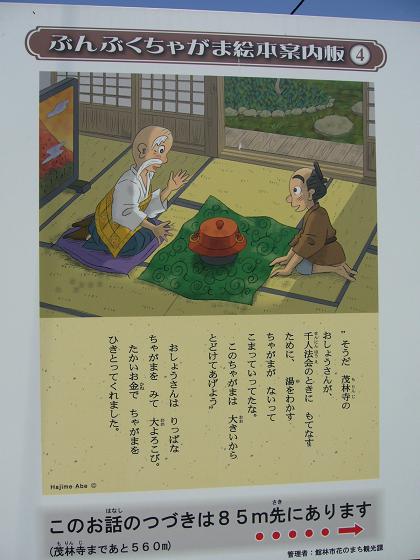 ぶんぶくちゃがま絵本案内板 4
"そうだ 茂林寺の
もりんじ
おしょうさんが、
千人法会のときに もてなす
せんにんほうえ
ために、 湯をわかす
ゆ
ちゃがまが ないって
こまっていってたな。
このちゃがまは 大きいから
おお
とどけてあげよう"
おしょうさんは りっぱな
ちゃがまを みて 大よろこび。
おお
たかいお金で ちゃがまを
かね
ひきとってくれました。
Hajime Abe ©
このお話のつづきは85m先にあります
はなし
さき
(茂林寺まであと560m)
もりんじ
管理者:館林市花のまち観光課